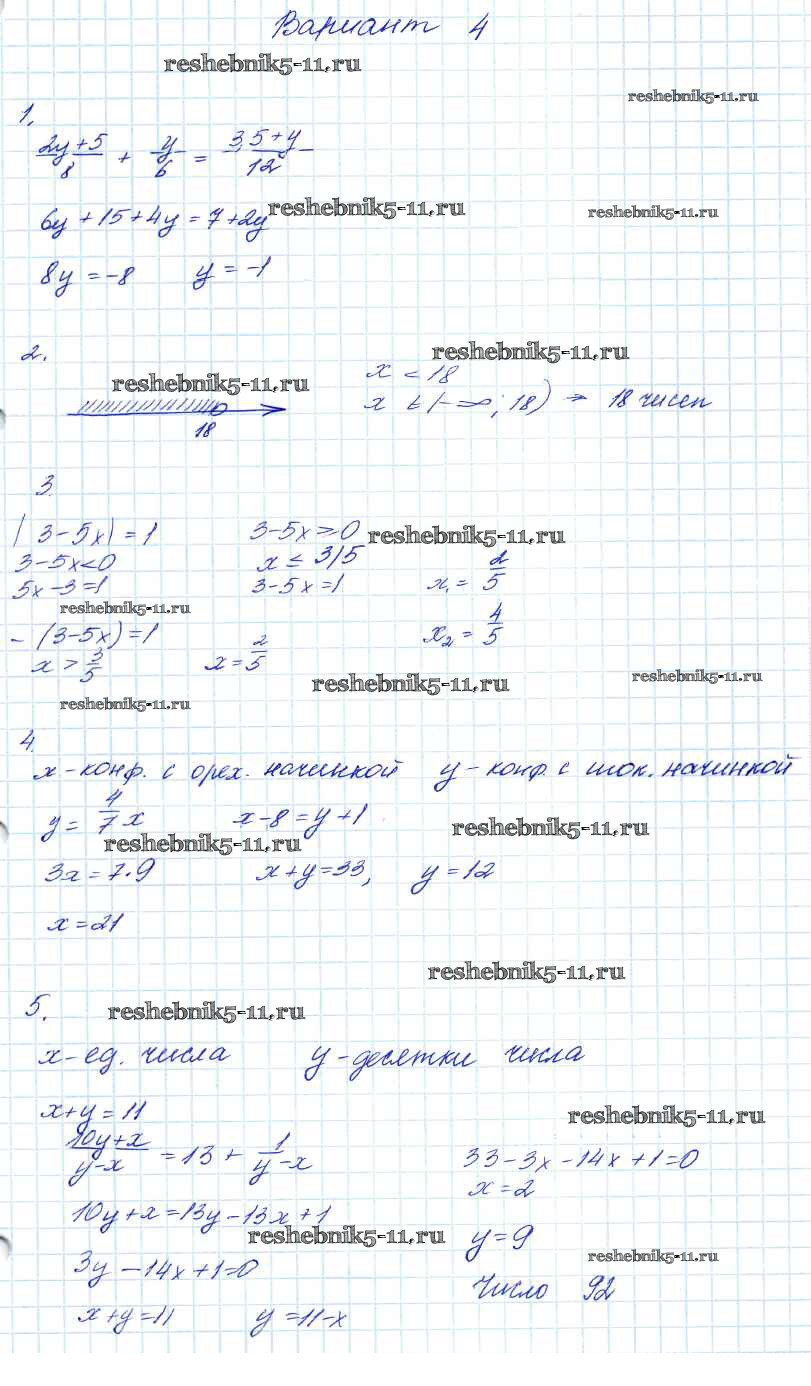 Вариант 4
reshebnik5-11.ru
reshebnik5-11.ru
1.
(2y+5)/8 + y/6 = (3,5+y)/12
6y+15+4y=7+2y reshebnik5-11.ru reshebnik5-11.ru
8y=-8 y=-1
2.
reshebnik5-11.ru
reshebnik5-11.ru x < 18
x ∈ (-∞; 18) → 18 чисел
18
3.
|3-5x|=1 3-5x≥0 reshebnik5-11.ru
3-5x<0 x ≤ 3/5
5x-3=1 3-5x=1 x₁ = 2/5
reshebnik5-11.ru
-(3-5x)=1 x₂ = 4/5
x > 3/5 x = 2/5
reshebnik5-11.ru reshebnik5-11.ru
reshebnik5-11.ru
4.
x-конф. с орех. начинкой y-конф. с шок. начинкой
y = 4/7 x x-8=y+1
reshebnik5-11.ru reshebnik5-11.ru
3x=7·9 x+y=33, y=12
x=21
reshebnik5-11.ru
5. reshebnik5-11.ru
x-ед. числа y-десятки числа
x+y=11
reshebnik5-11.ru
(10y+x)/(y-x) = 13 + 1/(y-x) 33-3x-14x+1=0
x=2
10y+x=13y-13x+1
reshebnik5-11.ru y=9
reshebnik5-11.ru
3y-14x+1=0 Число 92
x+y=11 y=11-x